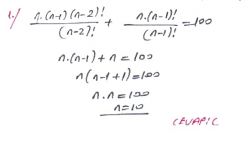 1-) n.(n-1)(n-2)!/(n-2)! + n.(n-1)!/(n-1)! = 100
n.(n-1) + n = 100
n(n-1+1) = 100
n.n = 100
n = 10
CEVAP: C